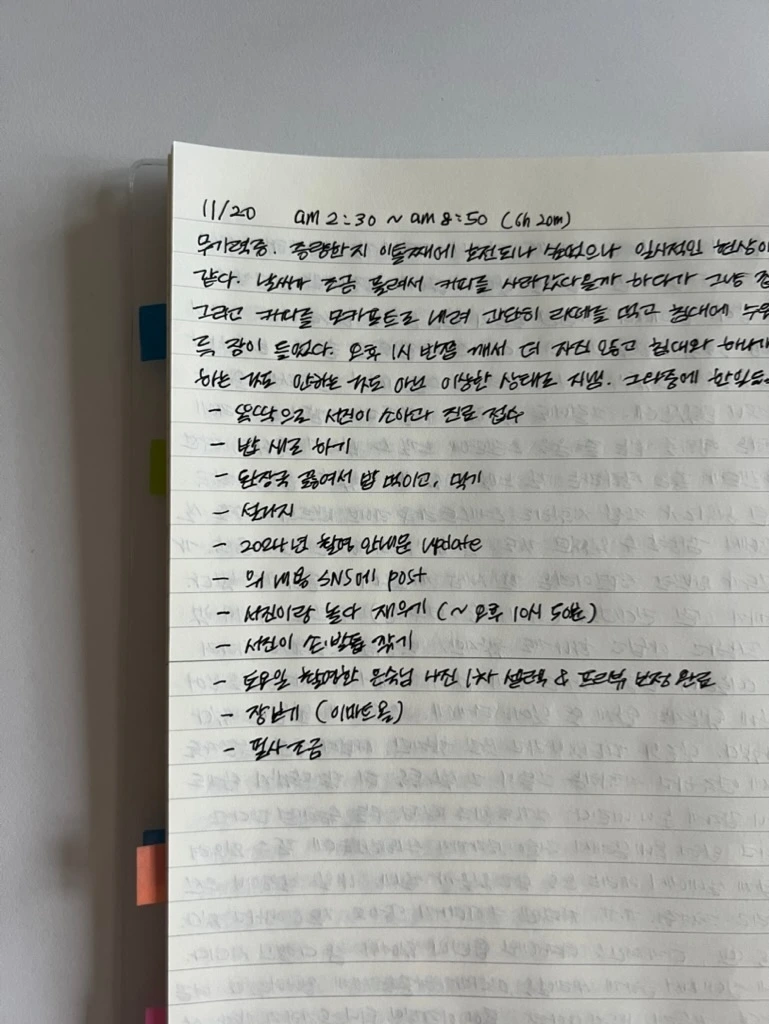 11/20 am 2:30 ~ am 8:50 (6h 20m)
무기력증. 증량한지 이틀째에 호전되나 싶었으나 일시적인 현상이
같다. 날씨가 조금 풀려서 커피를 사러갔다올까 하다가 그냥 집
그라고 커피를 모카포트로 내려 간단히 라떼를 먹고 침대에 누워
득 잠이 들었다. 오후 1시 반쯤 깨서 더 자진 않고 침대와 하나가
하는 것도 안하는 것도 아닌 이상한 상태로 지냄. 그 와중에 한일들
- 똑딱으로 서진이 소아과 진료 접수
- 밥 새로 하기
- 된장국 끓여서 밥 먹이고, 먹기
- 설거지
- 2024년 촬영 안내문 update
- 위 내용 SNS에 post
- 서진이랑 놀다 재우기 (~ 오후 10시 50분)
- 서진이 손·발톱 깎기
- 토요일 촬영한 은숙님 사진 1차 셀렉 & 프리뷰 보정 완료
- 장보기 (이마트몰)
- 필사 조금